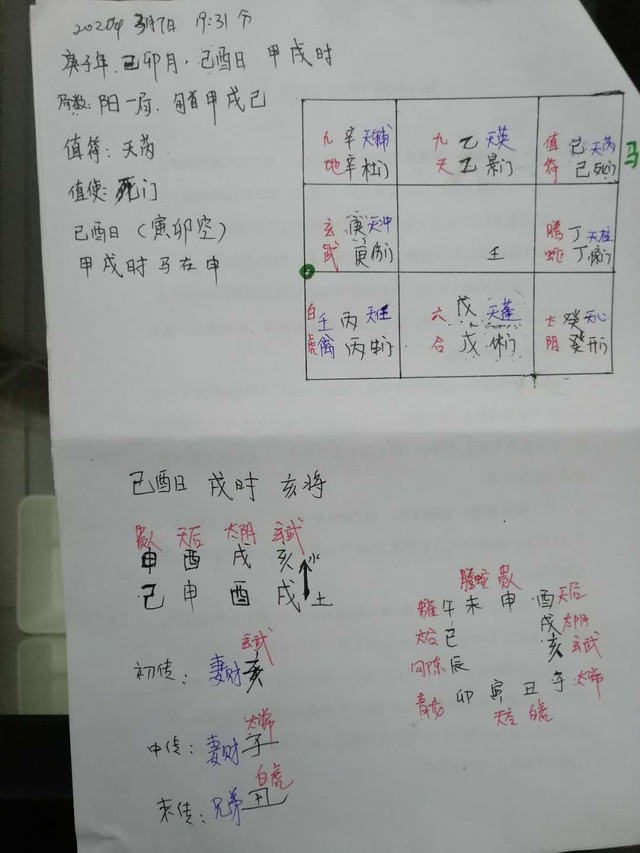 2020年3月7日 19:31分
庚子年.己卯月.己酉日 甲戌时
局数:阳一局.旬首甲戌己
值符:天芮
值使:死门
己酉日(寅卯空)
甲戌时马在申
九 辛 天辅
地 辛 杜门
九 乙 天英
天 乙 景门
值 己 天芮
符 己 死门
马
玄 庚 天冲
武 庚 伤门
壬
腾 丁 天柱
蛇 丁 惊门
白 壬 丙 天任
虎 禽 丙 生门
六 戊 天蓬
合 戊 休门
太 癸 天心
阴 癸 开门
己酉日 戌时 亥将
贵人 天后 太阴 玄武
申 酉 戌 亥 水
己 申 酉 戌 土
玄武
初传:妻财亥
太常
中传:妻财子
白虎
末传:兄弟丑
腾蛇 贵人
朱雀 午 未 申 酉 天后
戌 太阴
六合 巳 亥 玄武
勾陈 辰
青龙 卯 寅 丑 子 太常
天空 白虎